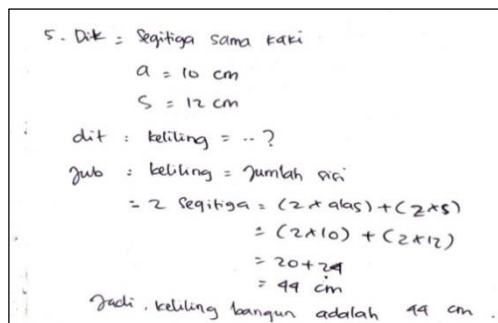 5. Dik = Segitiga sama kaki
a = 10 cm
s = 12 cm
dit : keliling = ..?
Jwb : keliling = Jumlah sisi
= 2 segitiga = (2 x alas) + (2 x s)
= (2x10) + (2x12)
= 20+24
= 44 cm
Jadi, keliling bangun adalah 44 cm.